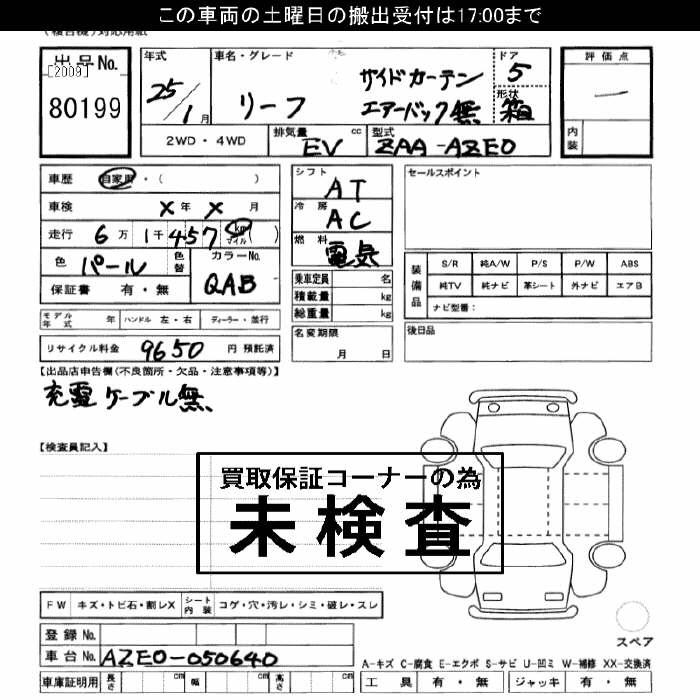 この車両の土曜日の搬出受付は17:00まで
(複合機)対応用紙
出品No.
[2009]
80199
年式
25/1月
車名・グレード
リーフ
サイドカーテン
エアーバック無
ドア
5
形状
箱
評価点
—
内装
2WD・4WD
排気量 EV cc
型式 ZAA-AZE0
車歴 自家用・( )
車検 X年 X月
走行 6万1千457 km マイル ( )
色 パール 色替
カラーNo.
QAB
保証書 有・無
シフト
AT
冷房
AC
燃料
電気
乗車定員 名
積載量 kg
総重量 kg
セールスポイント
装備品
S/R 純A/W P/S P/W ABS
純TV 純ナビ 革シート 外ナビ エアB
ナビ型番:
モデル年式 年 ハンドル 左・右 ディーラー・並行
名変期限
月 日
後日品
リサイクル料金 9650 円 預託済
【出品店申告欄(不良箇所・欠品・注意事項等)】
充電ケーブル無、
【検査員記入】
買取保証コーナーの為
未検査
FW キズ・トビ石・割レX シート内装 コゲ・穴・汚レ・シミ・破レ・スレ
登録No.
車台No. AZE0-050640
スペア
A-キズ C-腐食 E-エクボ S-サビ U-凹ミ W-補修 XX-交換済
車庫証明用 長さ cm 幅 cm 高さ cm
工具 有・無 ジャッキ 有・無